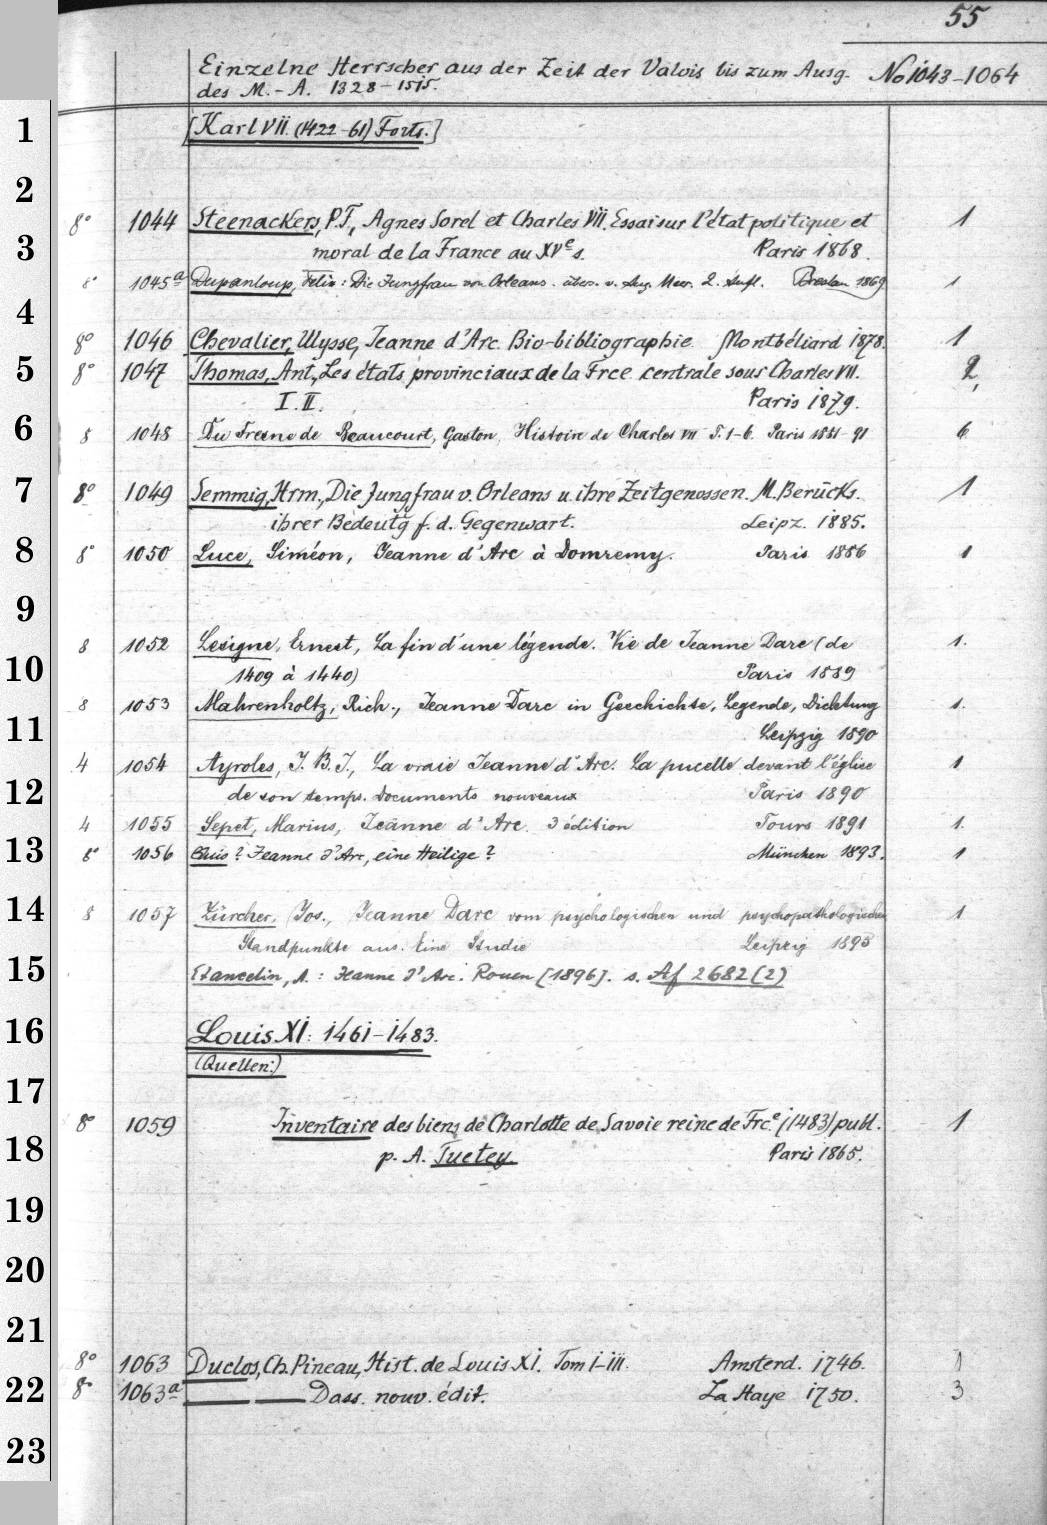 55
Einzelne Herrscher aus der Zeit der Valois bis zum Ausg. No 1043-1064
des M.-A. 1328-1515.
1 [Karl VII. (1422-61) Forts.]
2
8° 1044 Steenackers, P.F., Agnes Sorel et Charles VII. Essai sur l'état politique et 1
3 moral de la France au XVe s. Paris 1868.
8° 1045a Dupanloup, Felix: Die Jungfrau von Orleans. übers. v. Aug. 2. Aufl. Breslau 1869 1
4
8° 1046 Chevalier, Ulysse, Jeanne d'Arc. Bio-bibliographie. Montbéliard 1878. 1
5 8° 1047 Thomas, Ant., Les états provinciaux de la Frce centrale sous Charles VII. 2
I. II. Paris 1879.
6 8 1048 Du Fresne de Beaucourt, Gaston, Histoire de Charles VII T. 1-6. Paris 1881-91 6
7 8° 1049 Semmig, Hrm., Die Jungfrau v. Orleans u. ihre Zeitgenossen. M. Berücks. 1
ihrer Bedeutg f. d. Gegenwart. Leipz. 1885.
8 8° 1050 Luce, Siméon, Jeanne d'Arc à Domremy. Paris 1886 1
9
8 1052 Lesigne, Ernest, La fin d'une légende. Vie de Jeanne Darc (de 1.
10 1409 à 1440) Paris 1889
8 1053 Mahrenholtz, Rich., Jeanne Darc in Geschichte, Legende, Dichtung 1.
11 Leipzig 1890
4 1054 Ayroles, J. B. J., La vraie Jeanne d'Arc. La pucelle devant l'église 1
12 de son temps. Documents nouveaux Paris 1890
4 1055 Sepet, Marius, Jeanne d'Arc. 3 édition Tours 1891 1.
13 8° 1056 ? Jeanne d'Arc, eine Heilige? München 1893. 1
14 8 1057 Zürcher, Jos., Jeanne Darc vom psychologischen und psychopathologischen 1
Standpunkte aus. Eine Studie Leipzig 1895
15 Estancelin, A.: Jeanne d'Arc. Rouen [1896]. s. Af 2682 (2)
16 Louis XI: 1461-1483.
(Quellen:)
17
8° 1059 Inventaire des biens de Charlotte de Savoie reine de Frce (1483) publ. 1
18 p. A. Tuetey. Paris 1865.
19
20
21
8° 1063 Duclos, Ch. Pineau, Hist. de Louis XI. Tom I-III. Amsterd. 1746. 1
22 8° 1063a Dass. nouv. édit. La Haye 1750. 3
23